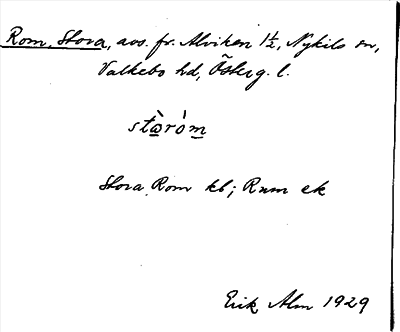 Rom, Stora, avs. fr. Alviken 1½, Nykils sn,
Valkebo hd, Österg. l.
stɑ̀róm
Stora Rom kb; Rum ek
Erik Alm 1929